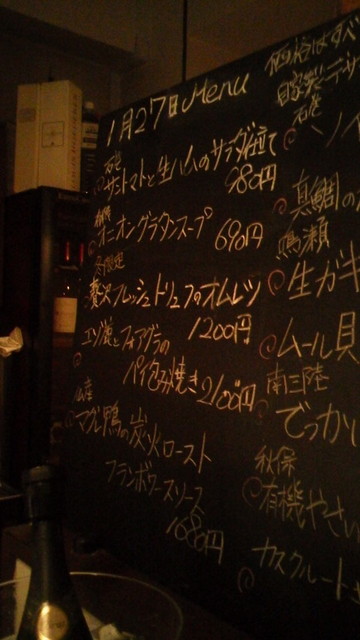 1月27日Menu
サントマトと生ハムのサラダ仕立て
980円
有機
オニオングラタンスープ
690円
冬限定
贅沢フレッシュトリュフのオムレツ
1200円
エゾ鹿とフォアグラの
パイ包み焼き2100円
マグレ鴨の炭火ロースト
フランボワーズソース
1680円
自家製
真鯛の
鳴瀬
生ガキ
ムール貝
南三陸
でっかい
秋保
有機やさい
カスクルート